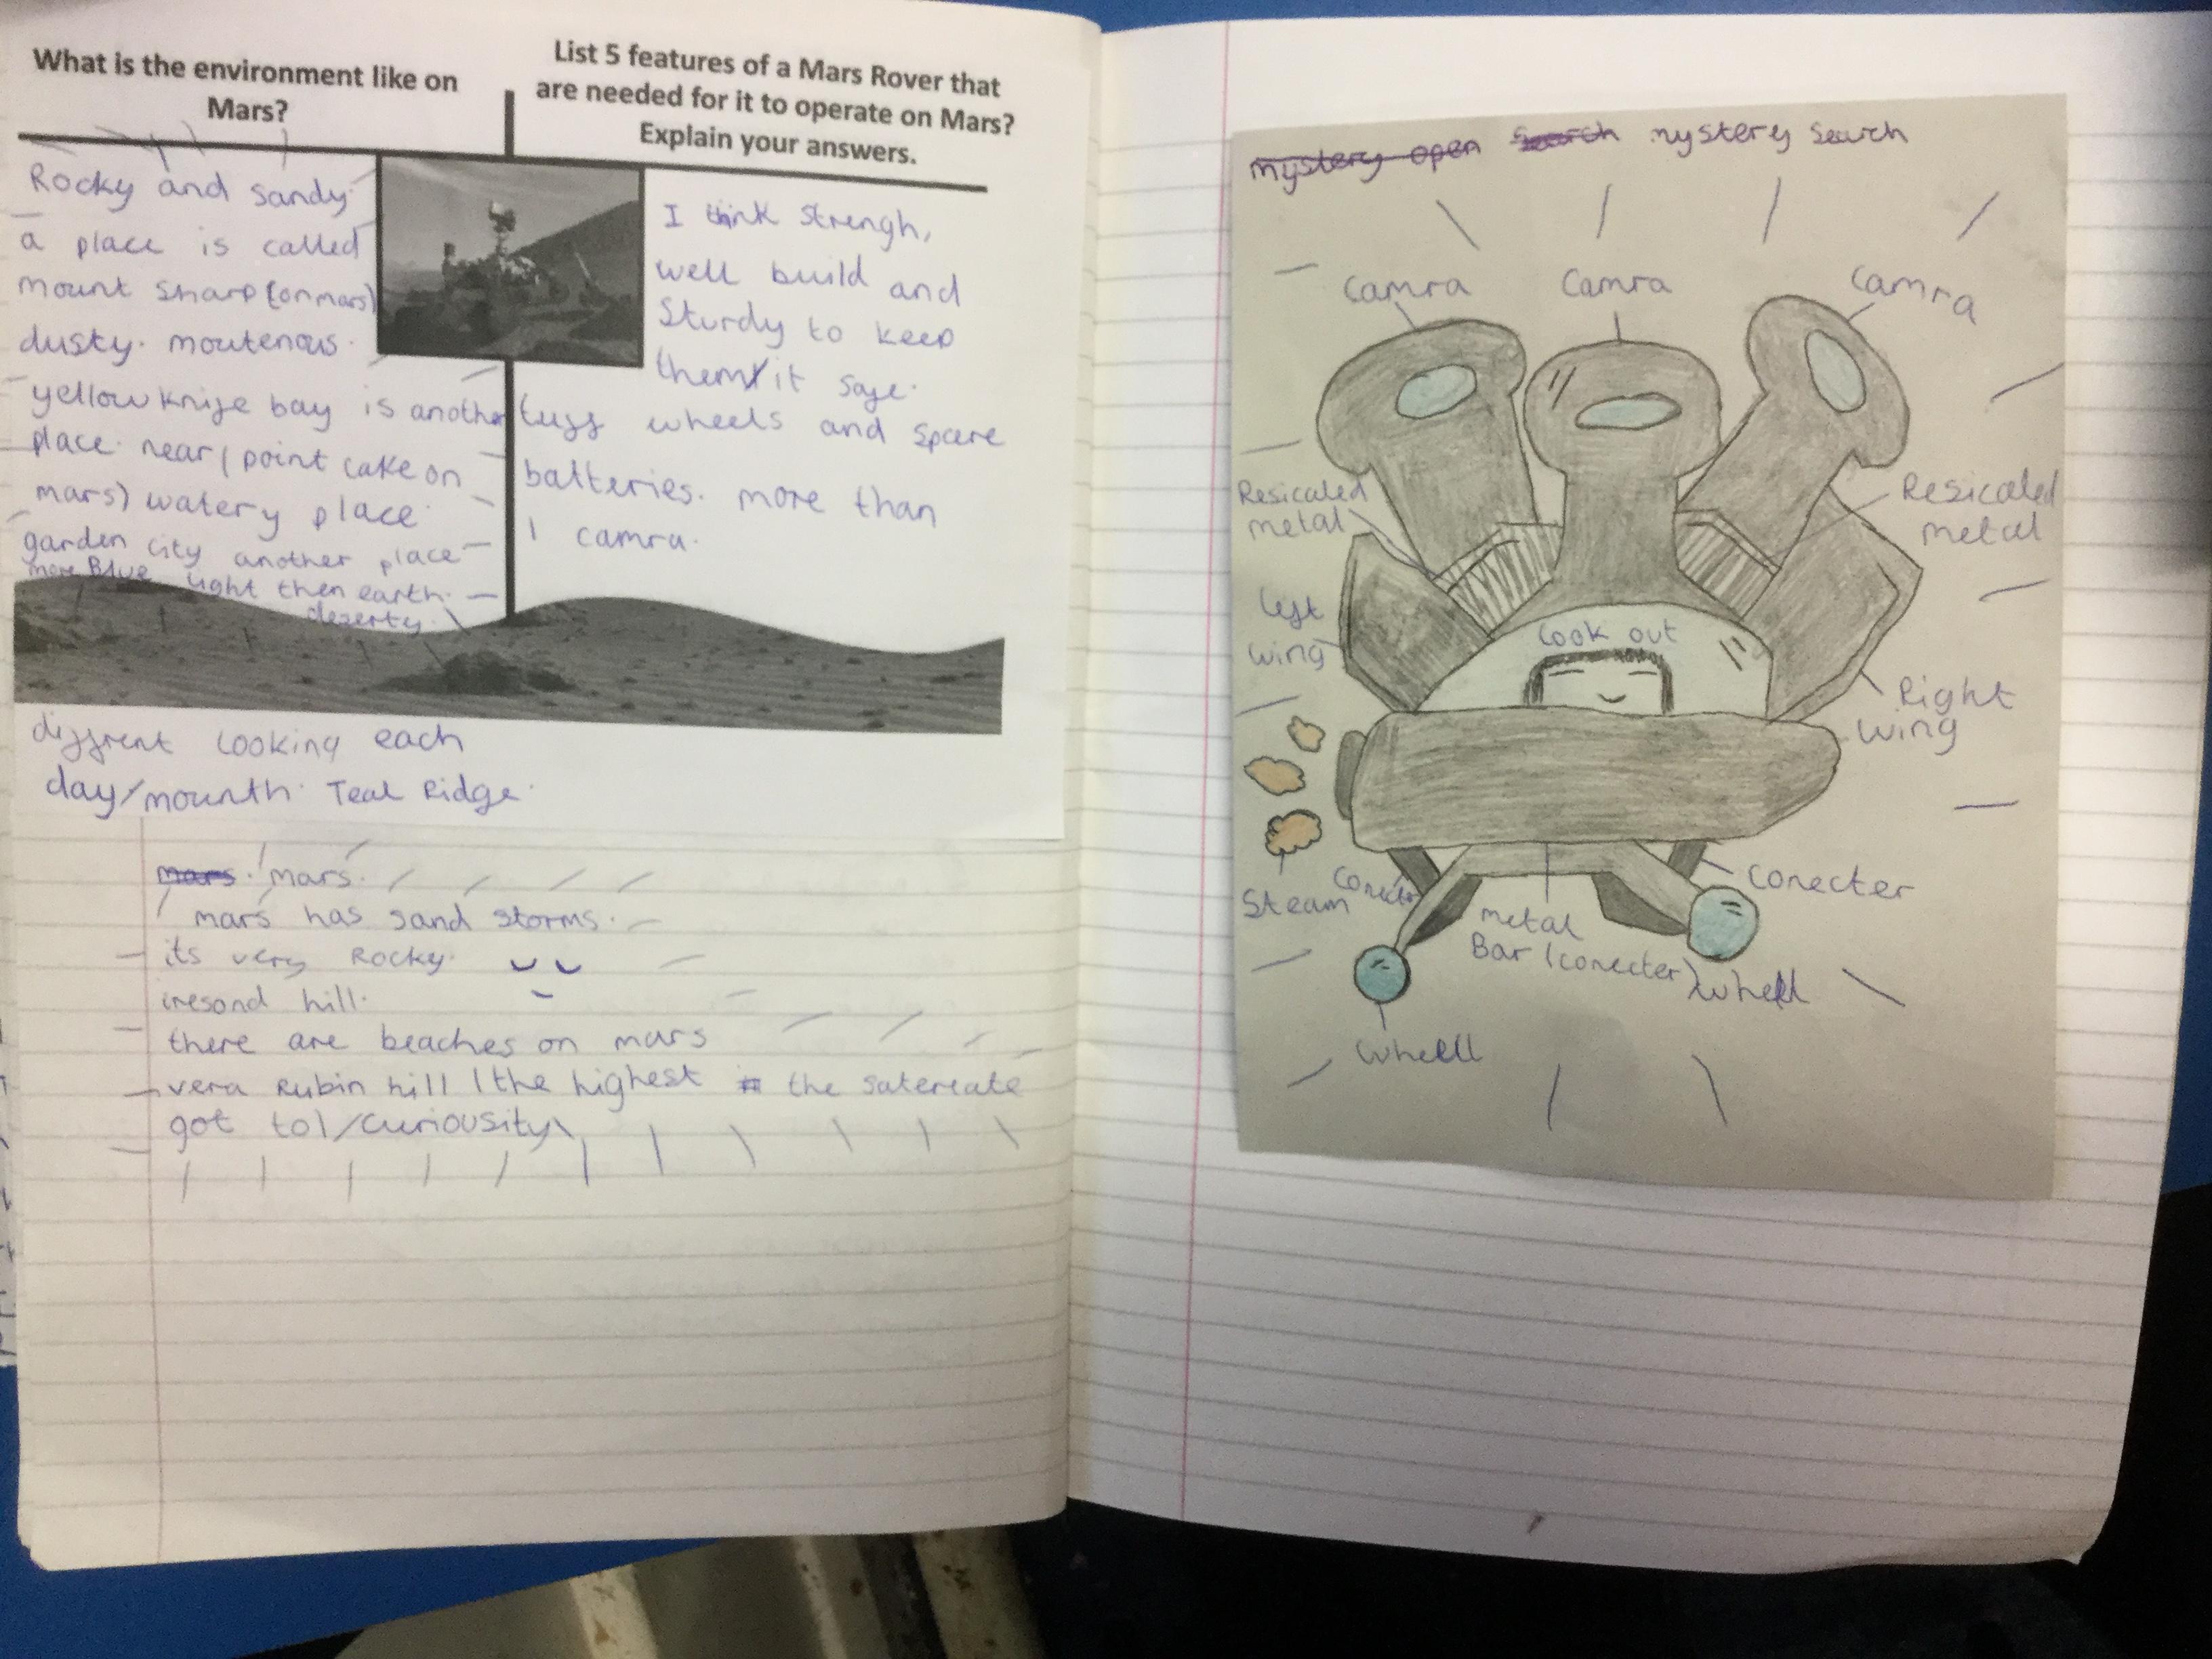 What is the environment like on
Mars?
Rocky and sandy.
a place is called
mount sharp (on mars)
dusty. moutenous.
yellow knife bay is another
place. near (point lake on
mars) watery place.
garden city another place
more Blue light then earth.
deserty.
diffrent looking each
day/mounth. Teal Ridge.
List 5 features of a Mars Rover that
are needed for it to operate on Mars?
Explain your answers.
I think strengh,
well build and
sturdy to keep
them/it safe.
tuff wheels and spare
batteries. more than
1 camra.
mars. mars.
mars has sand storms.
its very Rocky.
iresond hill.
there are beaches on mars
vera Rubin hill (the highest the satereate
got to) /curiousity\
mystery open search mystery search
camra
camra
camra
Resicaled
metal
Resicaled
metal
left
wing
look out
Right
wing
steam
conecter
conecter
metal
Bar (conecter)
whell
whell